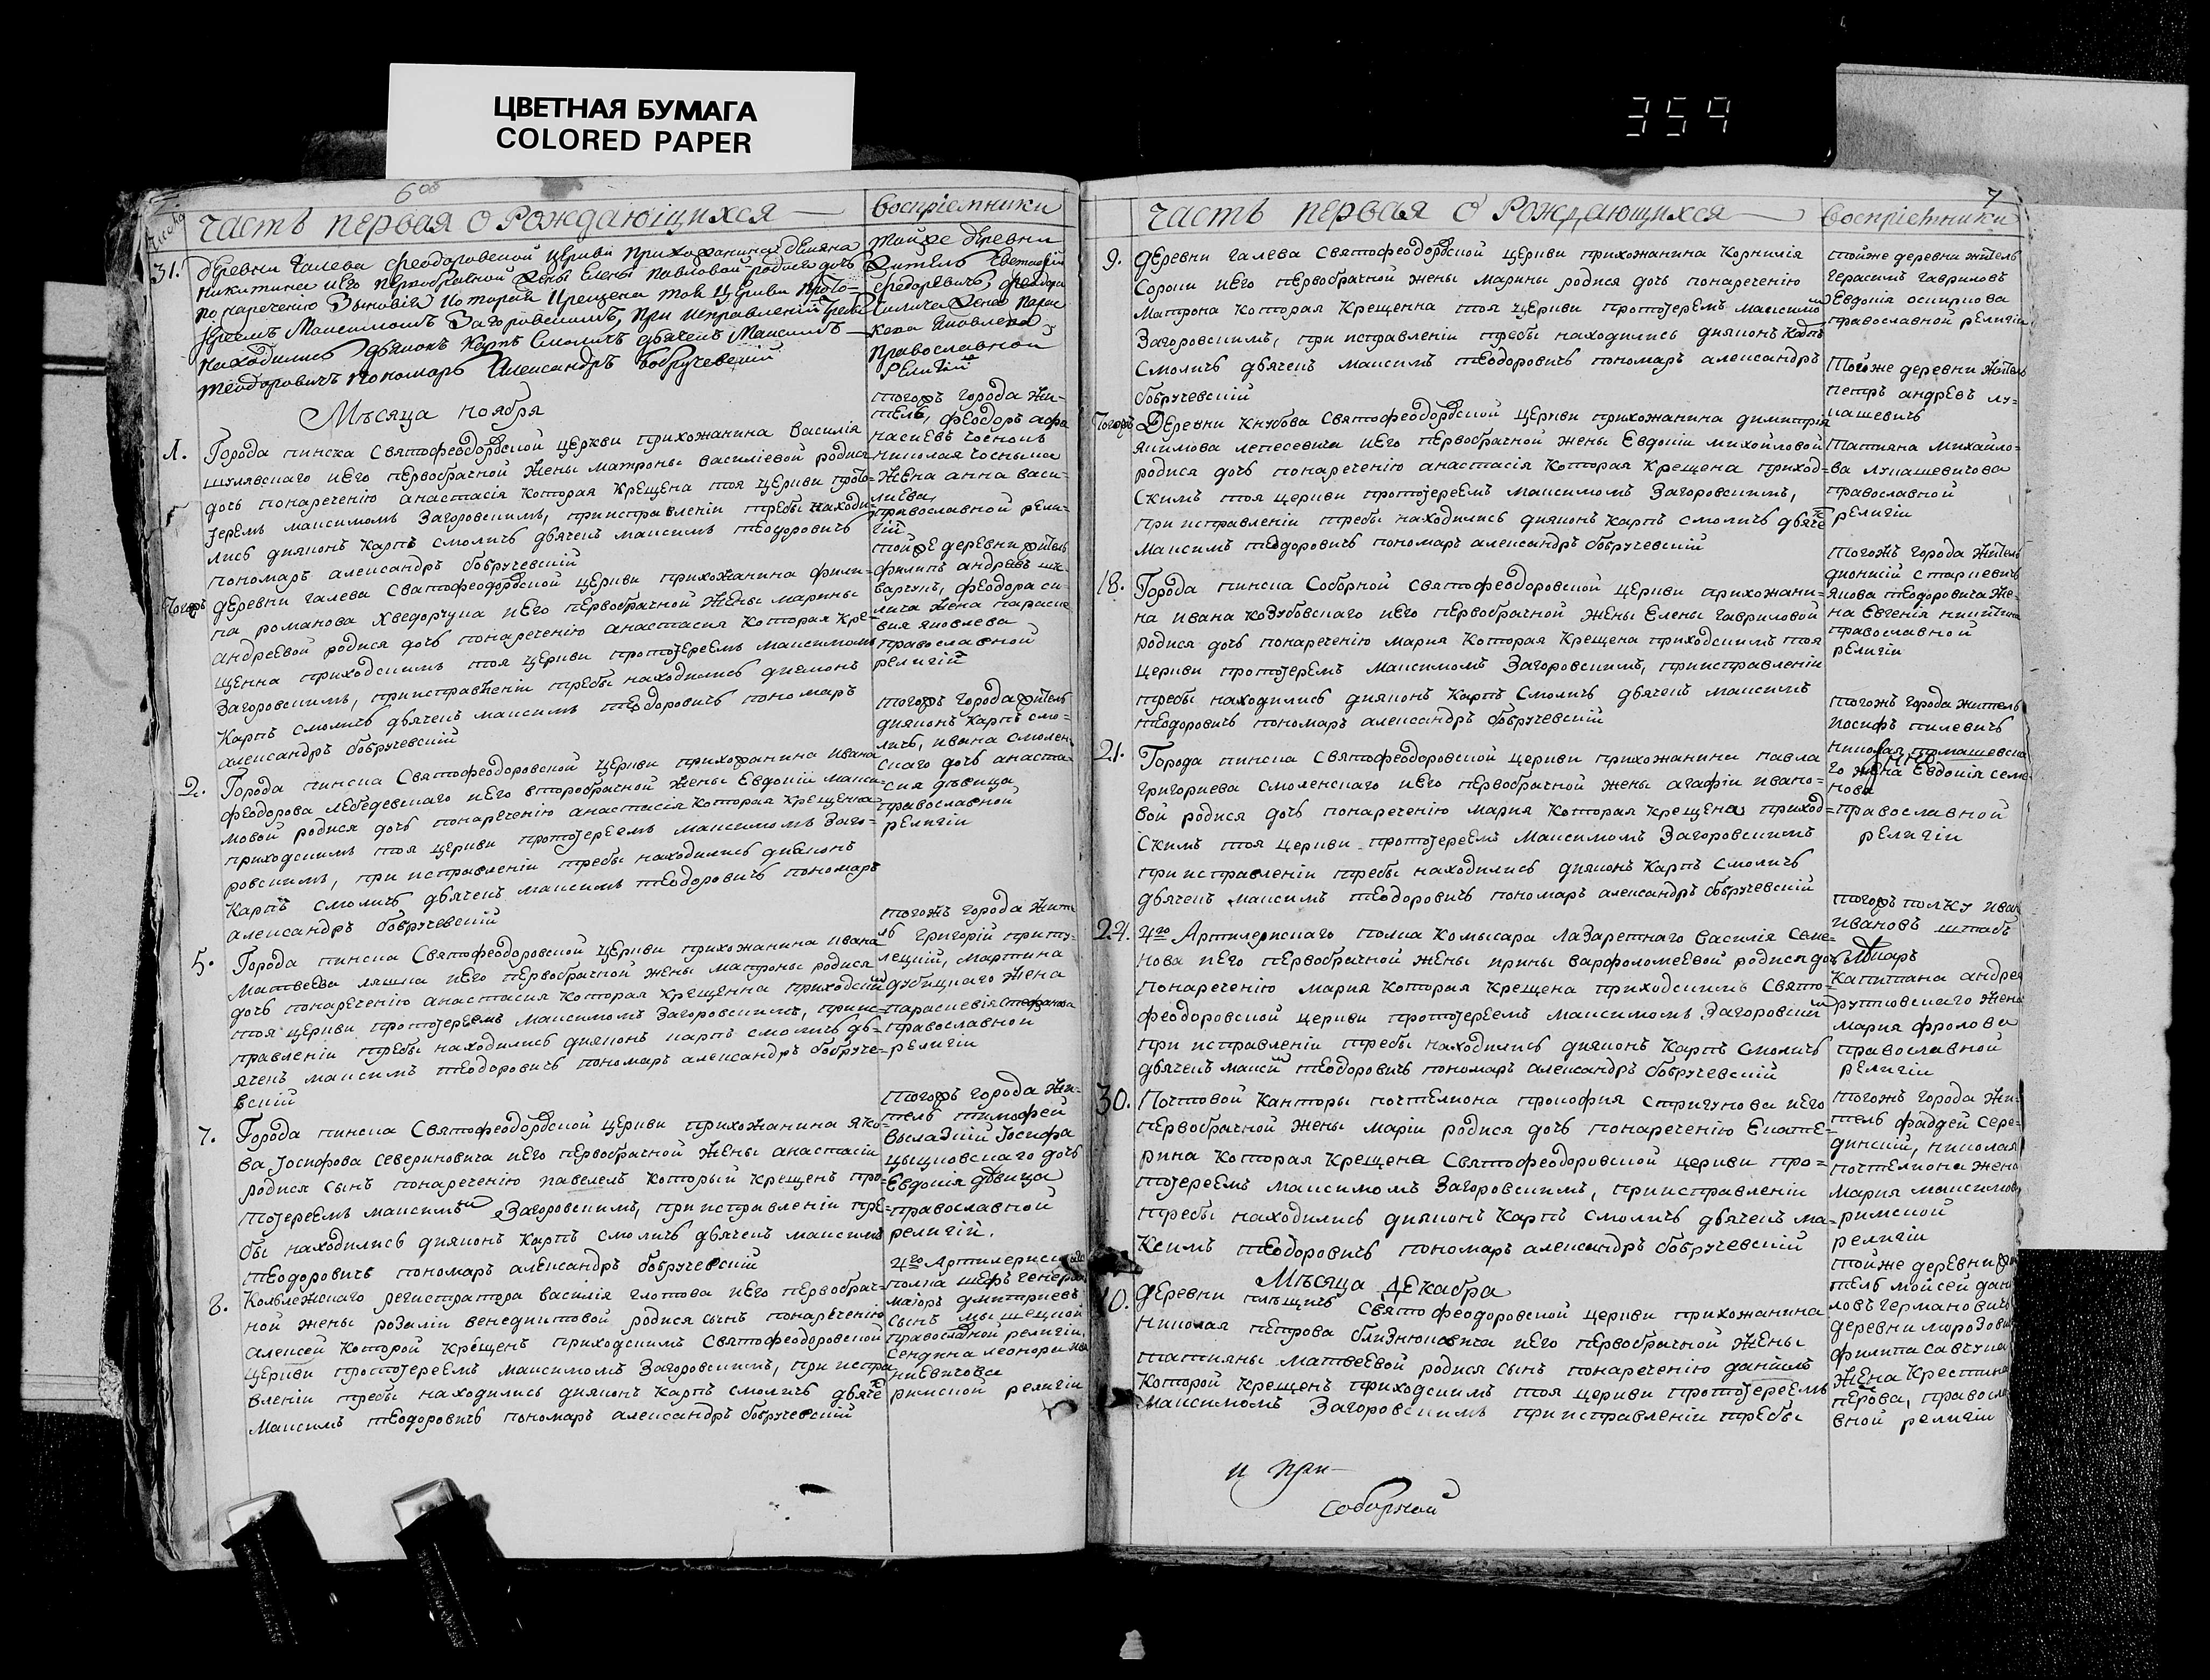 ЦВЕТНАЯ БУМАГА
COLORED PAPER
359
Часть первая о Рождающихся
воспріемники
31. деревни Галева феодоровской церкви прихожанина
Никитина и его первобрачной жены Елены Павловой родися дочь
по нареченію Зыновія которая крещена той церкви прото-
іереемъ Максимомъ Загоровскимъ, при исправленіи требы
находились діяконъ Карпъ Смоличъ дьячекъ Максимъ
Теодоровичъ пономаръ Александръ бобручевскій
тойже деревни
житель
федоровичъ,
жена
Яковлева
Православной
Религіи
Мѣсяца ноября
1. Города пинска Святофеодоровской церкви прихожанина василія
шулявскаго и его первобрачной жены матроны василіевой родися
дочь понареченію анастасія которая крещена тоя церкви прото-
іеремъ максимомъ Загоровскимъ, приисправленіи требы находи-
лись дияконъ карпъ смоличъ дьячекъ максимъ теодоровичъ
пономаръ александръ бобручевскій
тогожъ города жи-
тель, феодоръ афа
насиевъ
николая
жена анна васи-
лиева
православной рели-
гіи
Тогожъ деревни галева Святофеодоровской церкви прихожанина фили-
па романова хведорчука и его первобрачной жены марины
андреевой родися дочь понареченію анастасия которая кре-
щенна приходскимъ тоя церкви протоіереемъ максимомъ
Загоровскимъ, приисправленіи требы находились дияконъ
карпъ смоличъ дьячекъ максимъ теодоровичъ пономаръ
александръ бобручевскій
тойже деревни житель
филипъ андреевъ
феодора си-
лича жена параске
вия яковлева
православной
религіи
2. Города пинска Святофеодоровской церкви прихожанина ивана
феодорова лебедевскаго и его второбрачной жены Евдокіи макси-
мовой родися дочь понареченію анастасія которая крещенна
приходскимъ тоя церкви протоіереемъ максимомъ Заго-
ровскимъ, при исправленіи требы находились дияконъ
Карпъ смоличъ дьячекъ максимъ теодоровичъ пономаръ
александръ бобручевскій
тогожъ города житель
дияконъ карпъ смо-
личъ, ивана смолен-
скаго дочь анаста-
сия дѣвица
православной
религіи
5. Города пинска Святофеодоровской церкви прихожанина ивана
матвеева ляшка и его первобрачной жены матроны родися
дочь понареченію анастасия которая крещенна приходскимъ
тоя церкви протоіереемъ максимомъ Загоровскимъ, приис-
правленіи требы находились дияконъ карпъ смоличъ дь-
ячекъ максимъ теодоровичъ пономаръ александръ бобруче-
вскій
тогожъ города жите
ль григорій
мартина
дубицкаго жена
параскевія
православной
религіи
7. Города пинска Святофеодоровской церкви прихожанина яко-
ва Іосифова севериновича и его первобрачной жены анастасіи
родися сынъ понареченію павелелъ который крещенъ про-
тоіереемъ максимомъ Загоровскимъ, приисправленіи тре-
бы находились дияконъ карпъ смоличъ дьячекъ максимъ
теодоровичъ пономаръ александръ бобручевскій
тогожъ города жи-
тель тимофей
высладкій Іосифа
цыцновскаго дочь
Евдокія дѣвица
православной
религіи.
8. Колѣлежскаго регистратора василія глотова и его первобрач-
ной жены розаліи венедиктовой родися сынъ понареченію
алексей которой крещенъ приходскимъ Святофеодоровской
церкви протоіереемъ максимомъ Загоровскимъ, при испра
вленіи требы находились дияконъ Карпъ смоличъ дьяче
максимъ теодоровичъ пономаръ александръ бобручевскій
4го Артилериска
полка шефъ генерал
маіоръ дмитриевъ
сынъ
православной религіи,
леонора
римской религіи
7
Часть первая о Рождающихся
воспріемники
9. деревни галева Святофеодоровской церкви прихожанина Корнилія
Сороки и его первобрачной жены марины родися дочь понареченію
Матрона которая крещенна тоя церкви протоіеремъ максимомъ
Загоровскимъ, приисправленіи требы находились дияконъ Карпъ
смоличъ дьячекъ максимъ теодоровичъ пономаръ александръ
бобручевскій
тойже деревни житель
герасимъ гавриловъ
Евдокія осипчнова
православной религіи
Тогожъ Деревни Кнубова Святофеодоровской церкви прихожанина димитрія
якимова лепесевича и его первобрачной жены Евдокіи михойловой
родися дочь понареченію анастасія Которая Крещена приход-
скимъ тоя церкви протоіереемъ максимомъ Загоровскимъ,
при исправленіи требы находились дияконъ карпъ смоличъ дьяче
максимъ теодоровичъ пономаръ александръ бобручевскій
Тогоже деревни житель
петръ андреевъ лу-
кашевичъ
татияна михайло-
ва лукашевичова
православной
религіи
18. Города пинска Соборной Святофеодоровской церкви прихожани-
на ивана козубовскаго и его первобрачной жены Елены гавриловой
родися дочь понареченію мария которая крещена приходскимъ тоя
церкви протоіеремъ максимомъ Загоровскимъ, приисправленіи
требы находились дияконъ Карпъ Смоличъ дьячекъ максимъ
теодоровичъ пономаръ александръ бобручевскій
тогожъ города житель
дионисій старкевичъ
якова теодоровича же-
на Евгенія никитина
православной
религіи
21. Города пинска Святофеодоровской церкви прихожанина павла
григориева смоленскаго и его первобрачной жены агафіи ивано-
вой родися дочь понареченію мария которая крещена приход-
скимъ тоя церкви протоіереемъ максимомъ Загоровскимъ
приисправленіи требы находились дияконъ Карпъ Смоличъ
дьячекъ максимъ теодоровичъ пономаръ александръ бобручевскій
тогожъ города житель
иосифъ пилевичъ
николая томашевска
го жена Евдокія семе
нова
православной
религіи
24. 4го Артилерискаго полка комысара лазаретнаго василія семе-
нова и его первобрачной жены ирины варфоломеевой родися дочь
понареченію мария которая крещена приходскимъ Свято-
феодоровской церкви протоіереемъ максимомъ Загоровским
при исправленіи требы находились дияконъ Карпъ смоличъ
дьячекъ максим теодоровичъ пономаръ александръ бобручевскій
тогожъ полку иван
ивановъ штабъ
лѣкаръ
капитана андрея
рутковскаго жена
мария фролова
православной
религіи
30. Почтовой канторы почтелиона прокофия стригунова и его
первобрачной жены маріи родися дочь понареченію Екате-
рина которая крещена Святофеодоровской церкви про-
тоіереемъ максимомъ Загоровскимъ, приисправленіи
требы находились дияконъ Карпъ смоличъ дьячекъ ма-
ксимъ теодоровичъ пономаръ александръ бобручевскій
тогожъ города жи-
тель фаддей сере-
динскій, николая
почтелиона жена
мария максимова
римской
религіи
Мѣсяца декабра
10. деревни плещичъ Святофеодоровской церкви прихожанина
николая петрова близнюковича и его первобрачной жены
татияны матвеевой родися сынъ понареченію даніилъ
которой крещенъ приходскимъ тоя церкви протоіереемъ
максимомъ Загоровскимъ приисправленіи требы
тойже деревни жи
тель мойсей дани
ловъ германовичъ
деревни морозови
филипа савчука
жена крестина
петрова, правосла
вной религіи
и при-
соборной